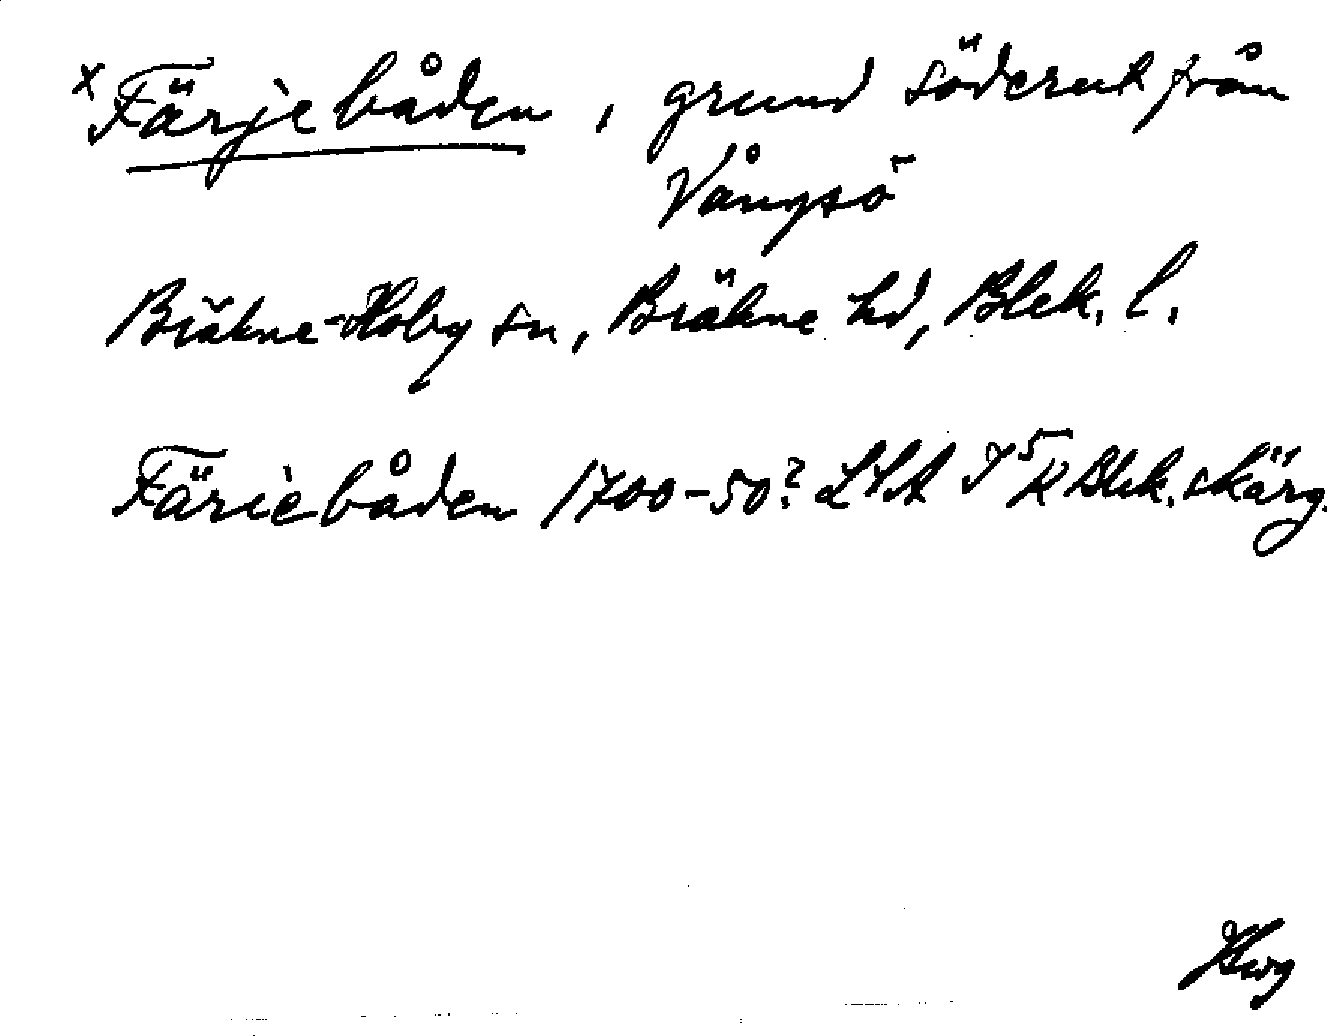 x Färjebåden, grund söderut från
Vångsö
Bräkne-Hoby sn, Bräkne hd, Blek. l.
Färiebåden 1700-50? LSA I 5 K Blek. skärg.
Hwg